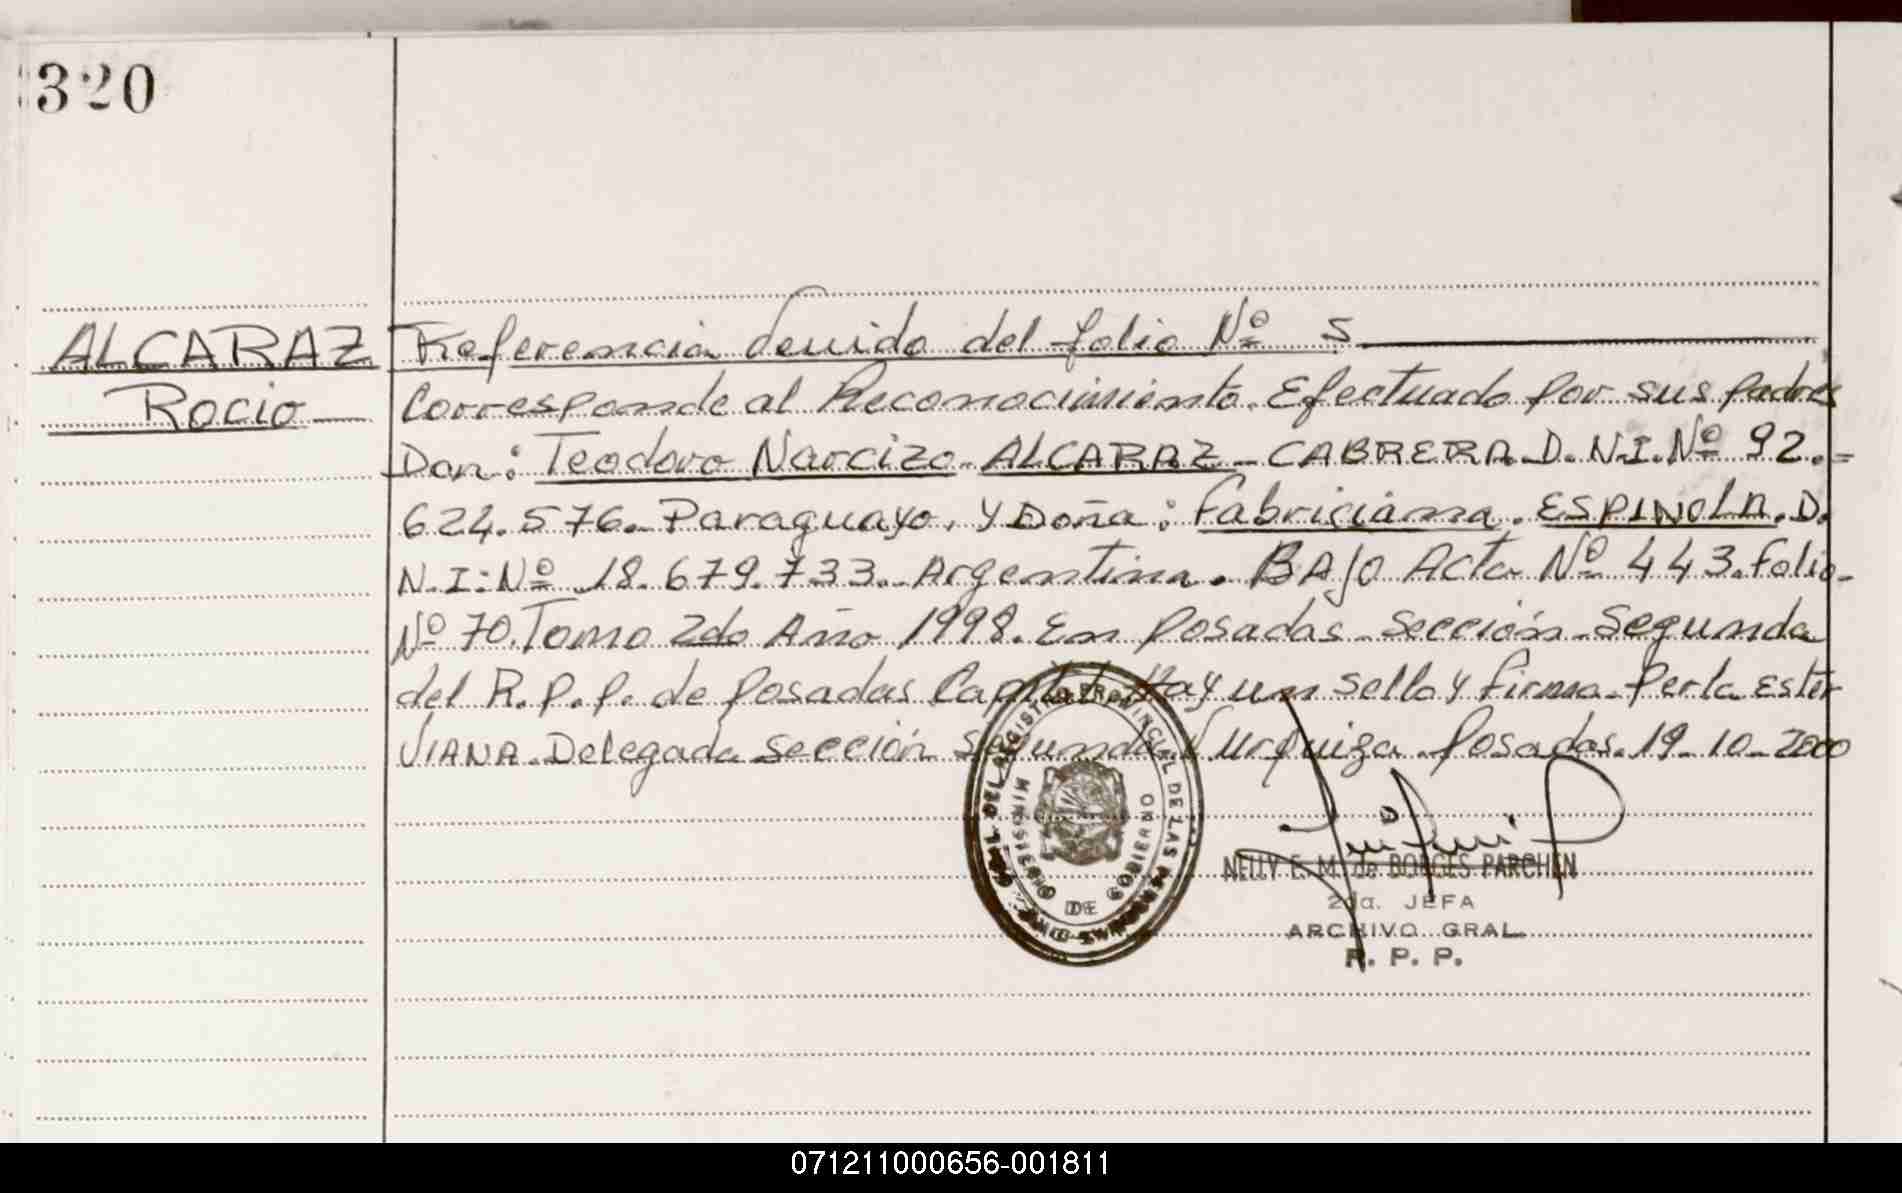 320
ALCARAZ
Rocio
Referencia devida del folio Nº 5
Corresponde al Reconocimiento. Efectuado por sus padres
Don: Teodoro Narcizo ALCARAZ - CABRERA. D.N.I. Nº 92.=
624.576. Paraguayo. Y Doña: Fabriciana. ESPINOLA. D.
N.I: Nº 18.679.733. Argentina. BAJO Acta Nº 443. folio-
Nº 70. Tomo 2do Año 1998. En Posadas. Sección Segunda
del R.P.P. de Posadas Capital. Hay un sello y firma. Perla Ester
VIANA. Delegada Sección Segunda V. Urquiza. Posadas. 19-10-2000
DEL REGISTRO PROVINCIAL DE LAS PERSONAS
MINISTERIO DE GOBIERNO
NELLY E. M. de BORGES PARCHEN
2da. JEFA
ARCHIVO GRAL.
R. P. P.
071211000656-001811